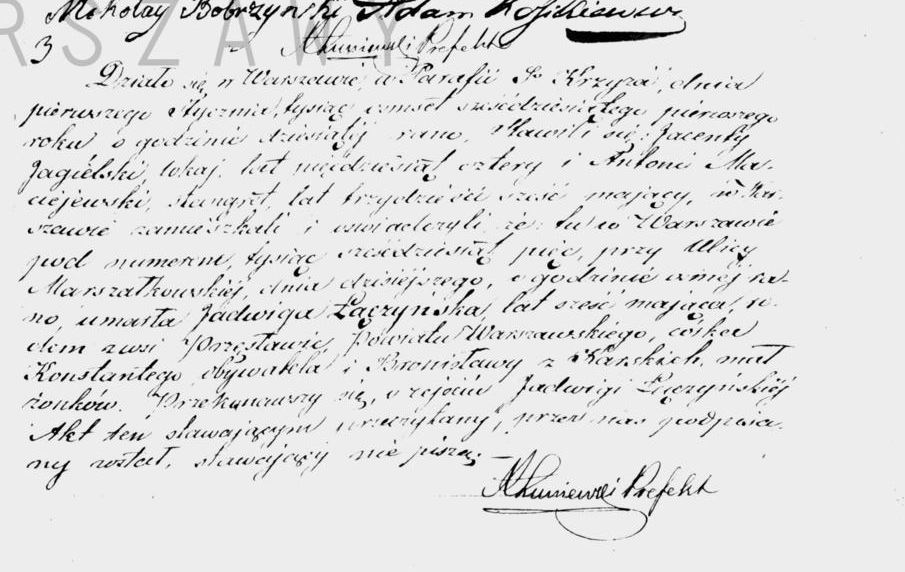 RSZAWY
Mikołay Bobrzyński Adam
3 Prefekt
Działo się w Warszawie, w Parafii Sº Krzyża, dnia
pierwszego Stycznia, tysiąc ośmset sześćdziesiątego pierwszego
roku o godzinie dziesiątej rano, Stawili się: Jacenty
Jagielski, lokaj, lat pięćdziesiąt cztery i Antoni Ma-
ciejewski, stangret, lat trzydzieści sześć mający, w War-
szawie zamieszkali i oświadczyli, że: tu w Warszawie
pod numerem, tysiąc sześćdziesiąt pięć, przy Ulicy
Marszałkowskiej, dnia dzisiejszego, o godzinie ósmej ra-
no, umarła Jadwiga Łączyńska, lat sześć mająca, ro-
dem z wsi Przesławic, Powiatu Warszawskiego, córka
Konstantego, obywatela i Bronisławy z Karskich, mał-
żonków. Przekonawszy się, o zejściu Jadwigi Łączyńskiej
Akt ten stawającym przeczytany, przez nas podpisa-
ny został, stawający nie piszą.
Prefekt